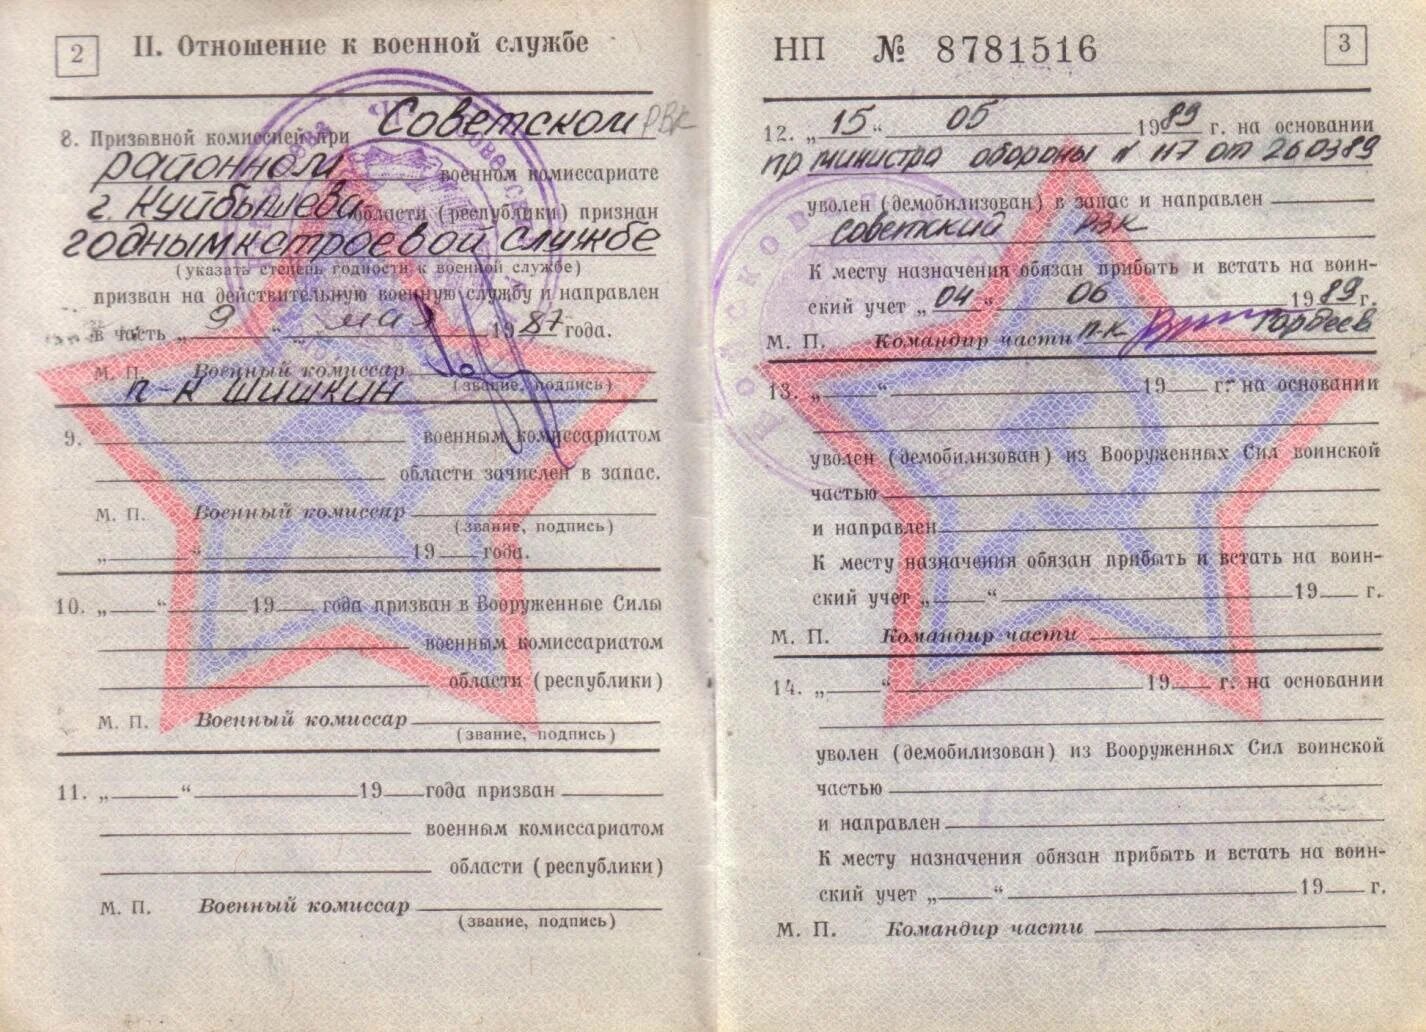 2
II. Отношение к военной службе
8. Призывной комиссией при Советском РВК
районном военном комиссариате
г. Куйбышева области (республики) признан
годным к строевой службе
(указать степень годности к военной службе)
призван на действительную военную службу и направлен
в часть „ 9 “ мая 1987 года.
М. П. Военный комиссар
(звание, подпись)
п-к Шишкин
9. военным комиссариатом
области зачислен в запас.
М. П. Военный комиссар
(звание, подпись)
„ “ 19 года.
10. „ “ 19 года призван в Вооруженные Силы
военным комиссариатом
области (республики)
М. П. Военный комиссар
(звание, подпись)
11. „ “ 19 года призван
военным комиссариатом
области (республики)
М. П. Военный комиссар
(звание, подпись)
НП № 8781516
3
12. „ 15 “ 05 1989 г. на основании
пр министра обороны N 117 от 260389
уволен (демобилизован) в запас и направлен
Советский РВК
К месту назначения обязан прибыть и встать на воин-
ский учет „ 04 “ 06 1989 г.
М. П. Командир части п-к Горбеев
13. „ “ 19 г. на основании
уволен (демобилизован) из Вооруженных Сил воинской
частью
и направлен
К месту назначения обязан прибыть и встать на воин-
ский учет „ “ 19 г.
М. П. Командир части
14. „ “ 19 г. на основании
уволен (демобилизован) из Вооруженных Сил воинской
частью
и направлен
К месту назначения обязан прибыть и встать на воин-
ский учет „ “ 19 г.
М. П. Командир части